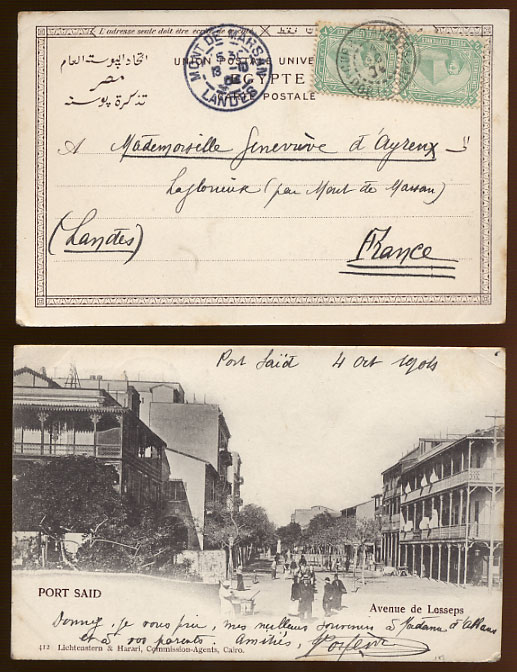 L'adresse seule doit être écrite
UNION POSTALE UNIVERSELLE
EGYPTE
CARTE POSTALE
اتحاد البوستة العام
مصر
تذكرة بوستة
MONT DE MARSAN
LANDES
A Mademoiselle Geneviève d'Ayrenx
Laglorieuse (par Mont de Marsan)
(Landes)
France
Port Saïd 4 Oct 1904
PORT SAID
Avenue de Lesseps
Donnez, je vous prie, mes meilleurs souvenirs à Madame d'
et à vos parents. Amitiés,
412 Lichtenstern & Harari, Commission-Agents, Cairo.